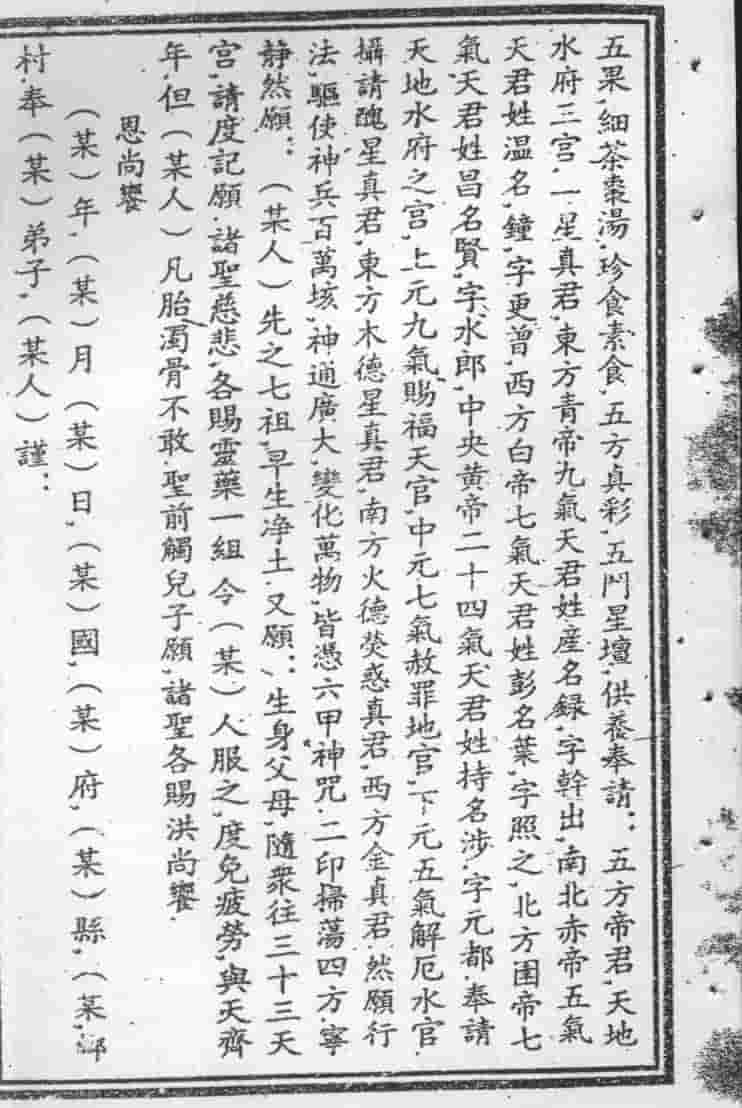 五果,細茶棗湯,珍食素食,五方真彩,五鬥星壇,供養奉請:五方帝君,天地
水府三宮.一星真君,東方青帝九氣天君姓産名録,字幹出,南北赤帝五氣
天君姓温名,鐘,字更曾,西方白帝七氣天君姓彭名葉,字照之,北方囯帝七
氣天君姓昌名賢,字水郎,中央黄帝二十四氣天君姓持名涉.字元都.奉請
天地水府之宫,上元九氣賜福天官,中元七氣赦罪地官,下元五氣解厄水官.
攝請醜星真君,東方木德星真君,南方火德熒惑真君,西方金真君.然願行
法,驅使神兵百萬垓,神通廣大,變化萬物,皆憑六甲神咒.二印掃蕩四方.寧
静然願:(某人)先之七祖,早生净土.又願:,生身父母,隨衆往三十三天
宫,請度記願.諸聖慈悲,各賜靈藥一組.令(某)人服之,度免疲勞,與天齊
年,但(某人)凡胎濁骨不敢.聖前觸兒子願,諸聖各賜洪尚饗.
恩尚饗
(某)年,(某)月(某)日,(某)國,(某)府,(某)縣,(某,鄉
村.奉(某)弟子,(某人)謹: